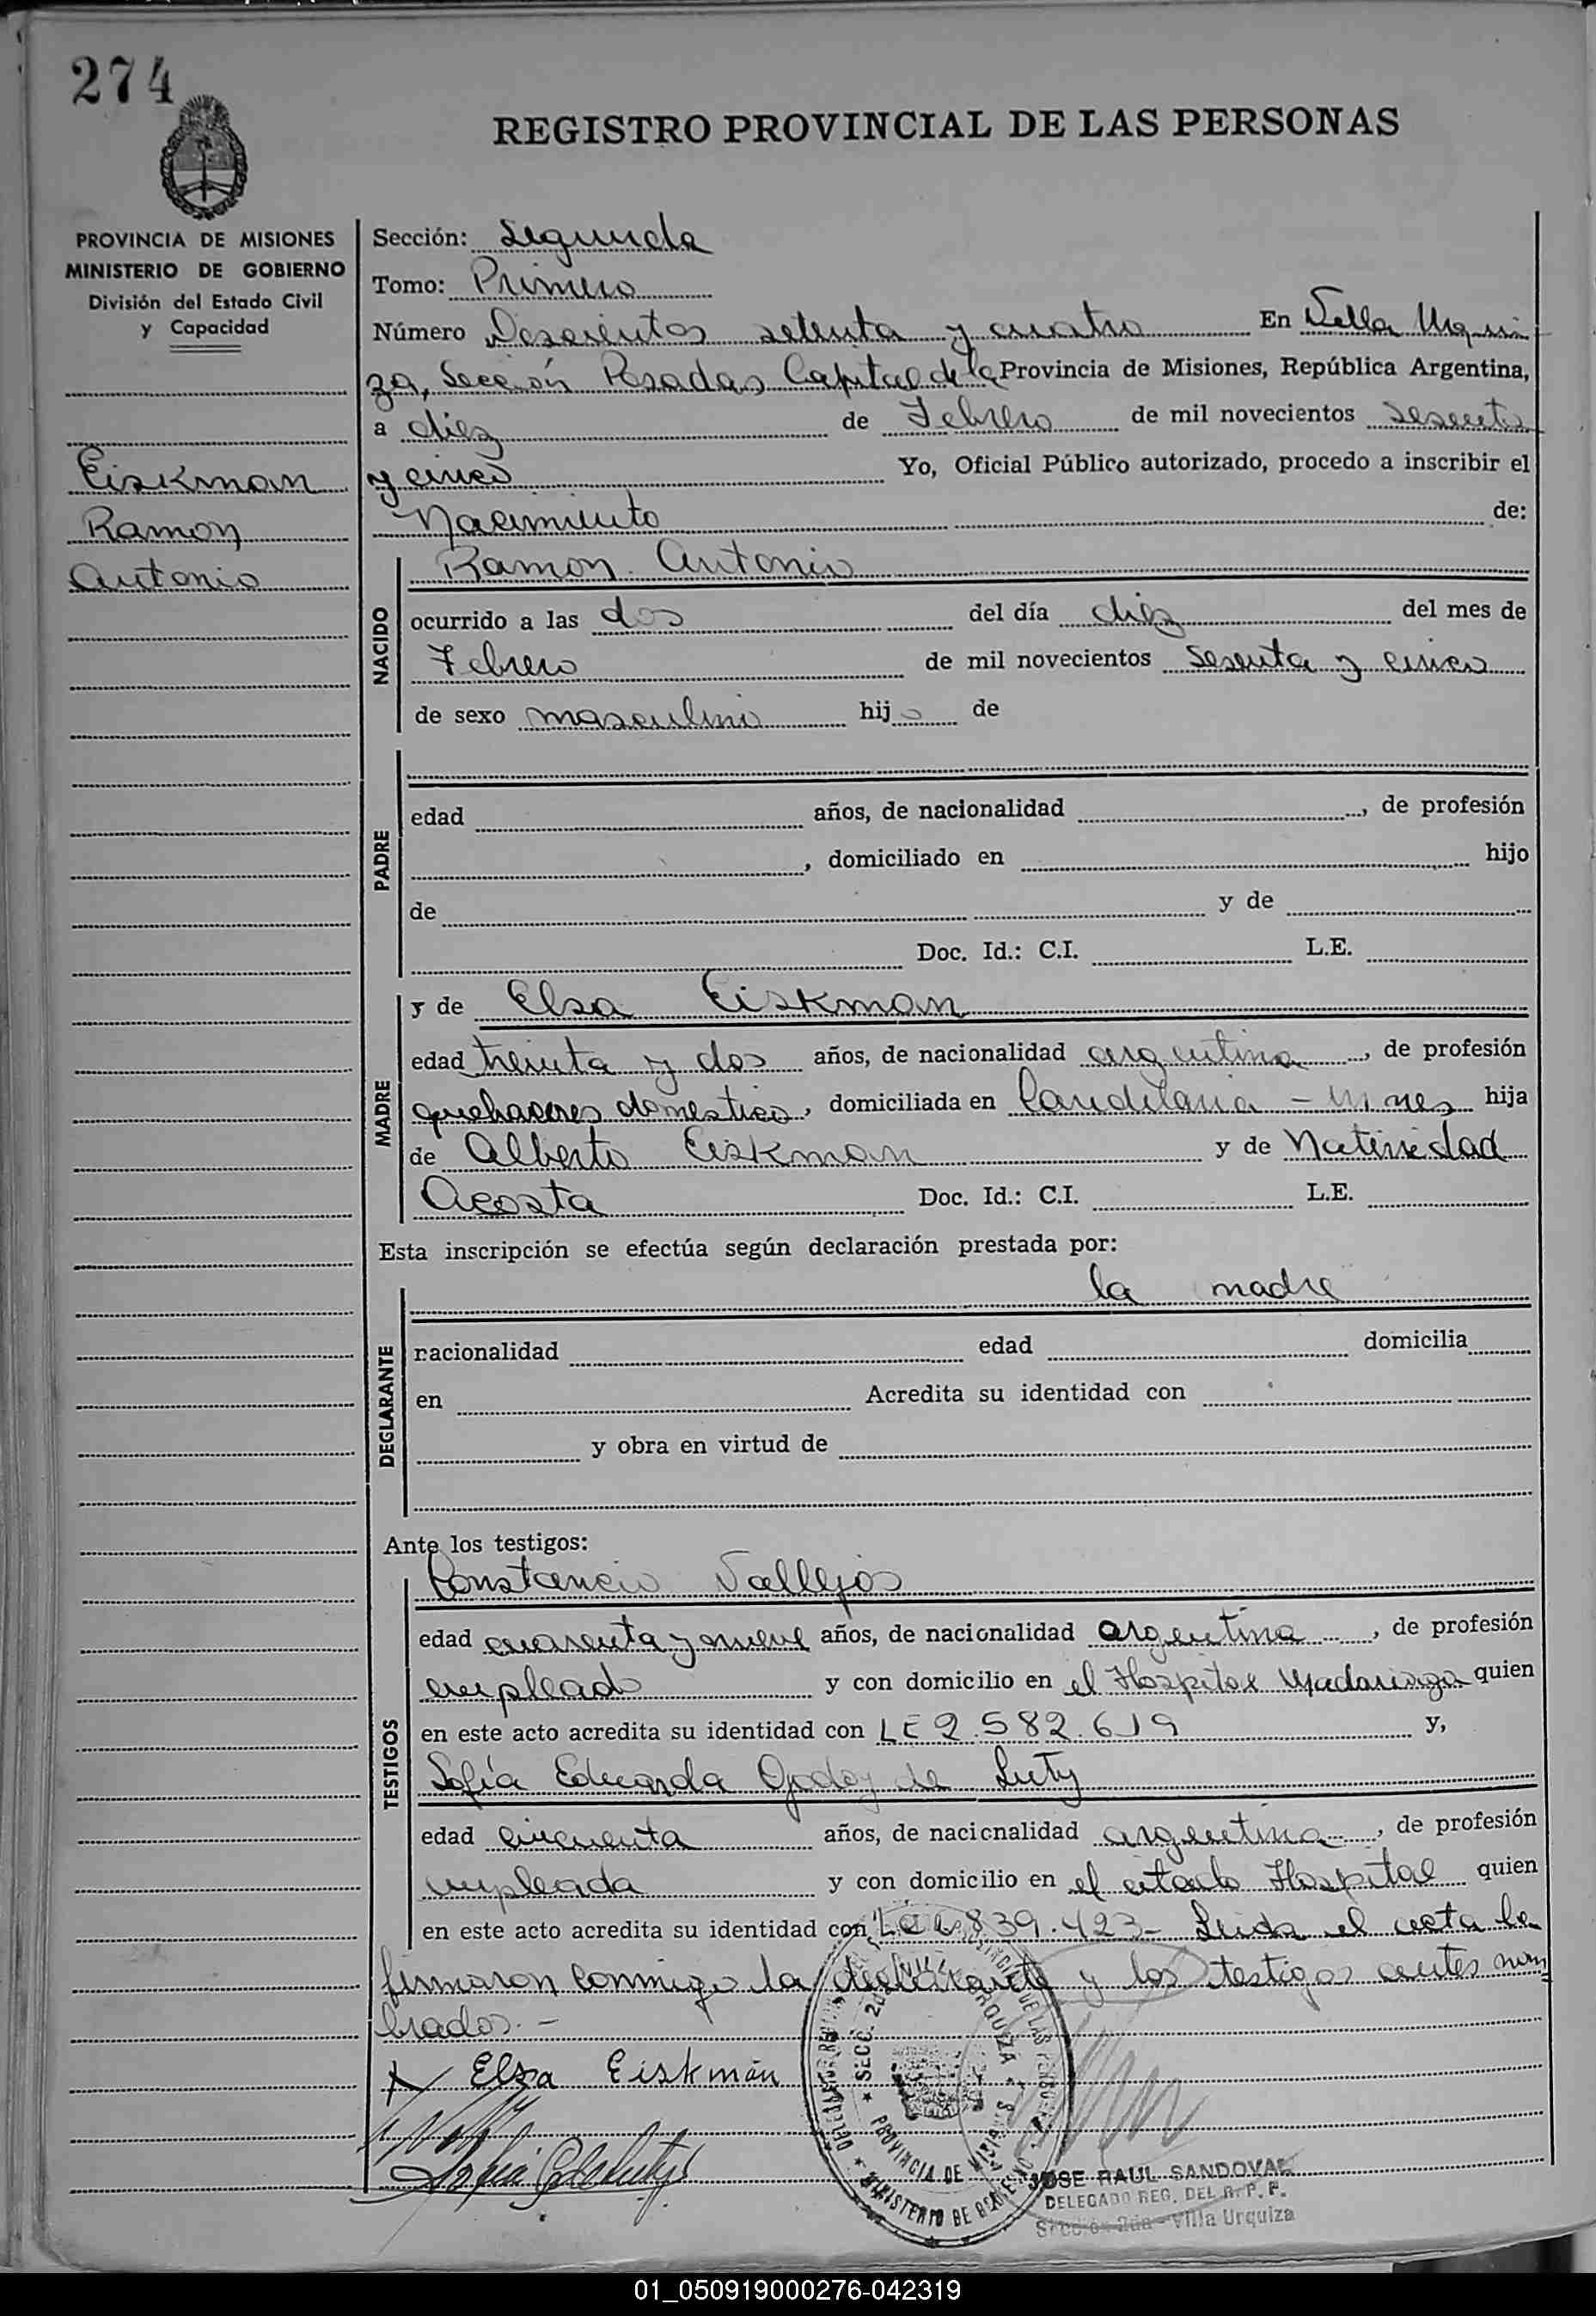 274
REGISTRO PROVINCIAL DE LAS PERSONAS
PROVINCIA DE MISIONES
MINISTERIO DE GOBIERNO
División del Estado Civil
y Capacidad
Eiskman
Ramon
Antonio
Sección: Segunda
Tomo: Primero
Número Doscientos setenta y cuatro En Villa Urqui
za, Sección Posadas Capital de la Provincia de Misiones, República Argentina,
a diez de Febrero de mil novecientos sesenta
y cinco Yo, Oficial Público autorizado, procedo a inscribir el
Nacimiento de:
NACIDO
Ramon Antonio
ocurrido a las dos del día diez del mes de
Febrero de mil novecientos sesenta y cinco
de sexo masculino hijo de
PADRE
edad años, de nacionalidad , de profesión
, domiciliado en hijo
de y de
Doc. Id.: C.I. L.E.
MADRE
y de Elsa Eiskman
edad treinta y dos años, de nacionalidad argentina, de profesión
quehaceres domestico, domiciliada en Candelaria - Mnes hija
de Alberto Eiskman y de Natividad
Acosta Doc. Id.: C.I. L.E.
Esta inscripción se efectúa según declaración prestada por:
DECLARANTE
la madre
nacionalidad edad domicilia
en Acredita su identidad con
y obra en virtud de
Ante los testigos:
TESTIGOS
Constancio Vallejos
edad cuarenta y nueve años, de nacionalidad argentina, de profesión
empleado y con domicilio en el Hospital Madariaga quien
en este acto acredita su identidad con LE 2.582.619 y,
Sofía Eduarda Godoy de Luty
edad cincuenta años, de nacionalidad argentina, de profesión
empleada y con domicilio en el citado Hospital quien
en este acto acredita su identidad con 839.423- Leida el acta la
firmaron conmigo la declarante y los testigos antes nom
brados.-
Elsa Eiskmán
SECC. 2da URQUIZA
PROVINCIA DE MISIONES
MINISTERIO DE GOBIERNO
JOSE RAUL SANDOVAL
DELEGADO REG. DEL R. P. P.
Sección 2da - Villa Urquiza
01_050919000276-042319